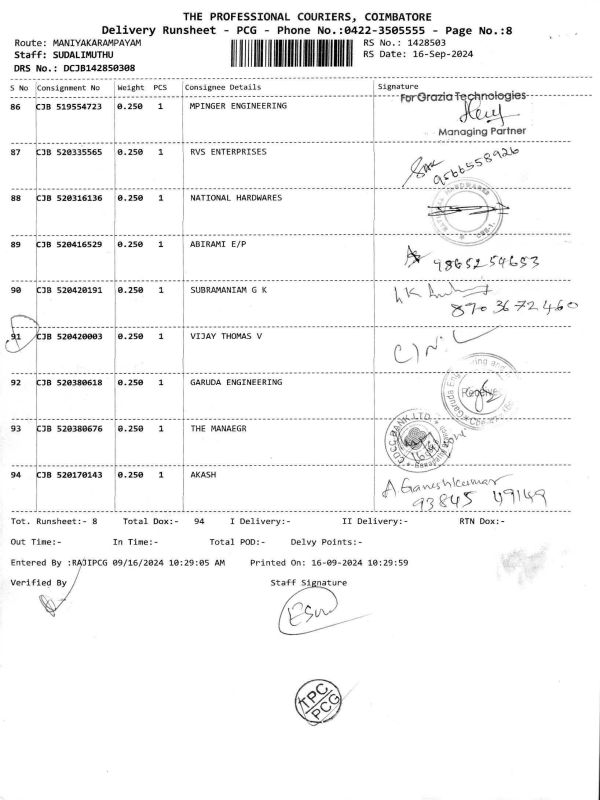 THE PROFESSIONAL COURIERS, COIMBATORE
Delivery Runsheet - PCG - Phone No.:0422-3505555 - Page No.:8
Route: MANIYAKARAMPAYAM RS No.: 1428503
Staff: SUDALIMUTHU RS Date: 16-Sep-2024
DRS No.: DCJB142850308
S No Consignment No Weight PCS Consignee Details Signature
For Grazia Technologies
86 CJB 519554723 0.250 1 MPINGER ENGINEERING
Managing Partner
87 CJB 520335565 0.250 1 RVS ENTERPRISES 9566558926
88 CJB 520316136 0.250 1 NATIONAL HARDWARES
89 CJB 520416529 0.250 1 ABIRAMI E/P 9865254653
90 CJB 520420191 0.250 1 SUBRAMANIAM G K
8703672460
91 CJB 520420003 0.250 1 VIJAY THOMAS V
92 CJB 520380618 0.250 1 GARUDA ENGINEERING
93 CJB 520380676 0.250 1 THE MANAEGR CDCC BANK LTD.
94 CJB 520170143 0.250 1 AKASH A Ganeshkumar
93845 49149
Tot. Runsheet:- 8 Total Dox:- 94 I Delivery:- II Delivery:- RTN Dox:-
Out Time:- In Time:- Total POD:- Delvy Points:-
Entered By :RAJIPCG 09/16/2024 10:29:05 AM Printed On: 16-09-2024 10:29:59
Verified By Staff Signature
TPC
PCG